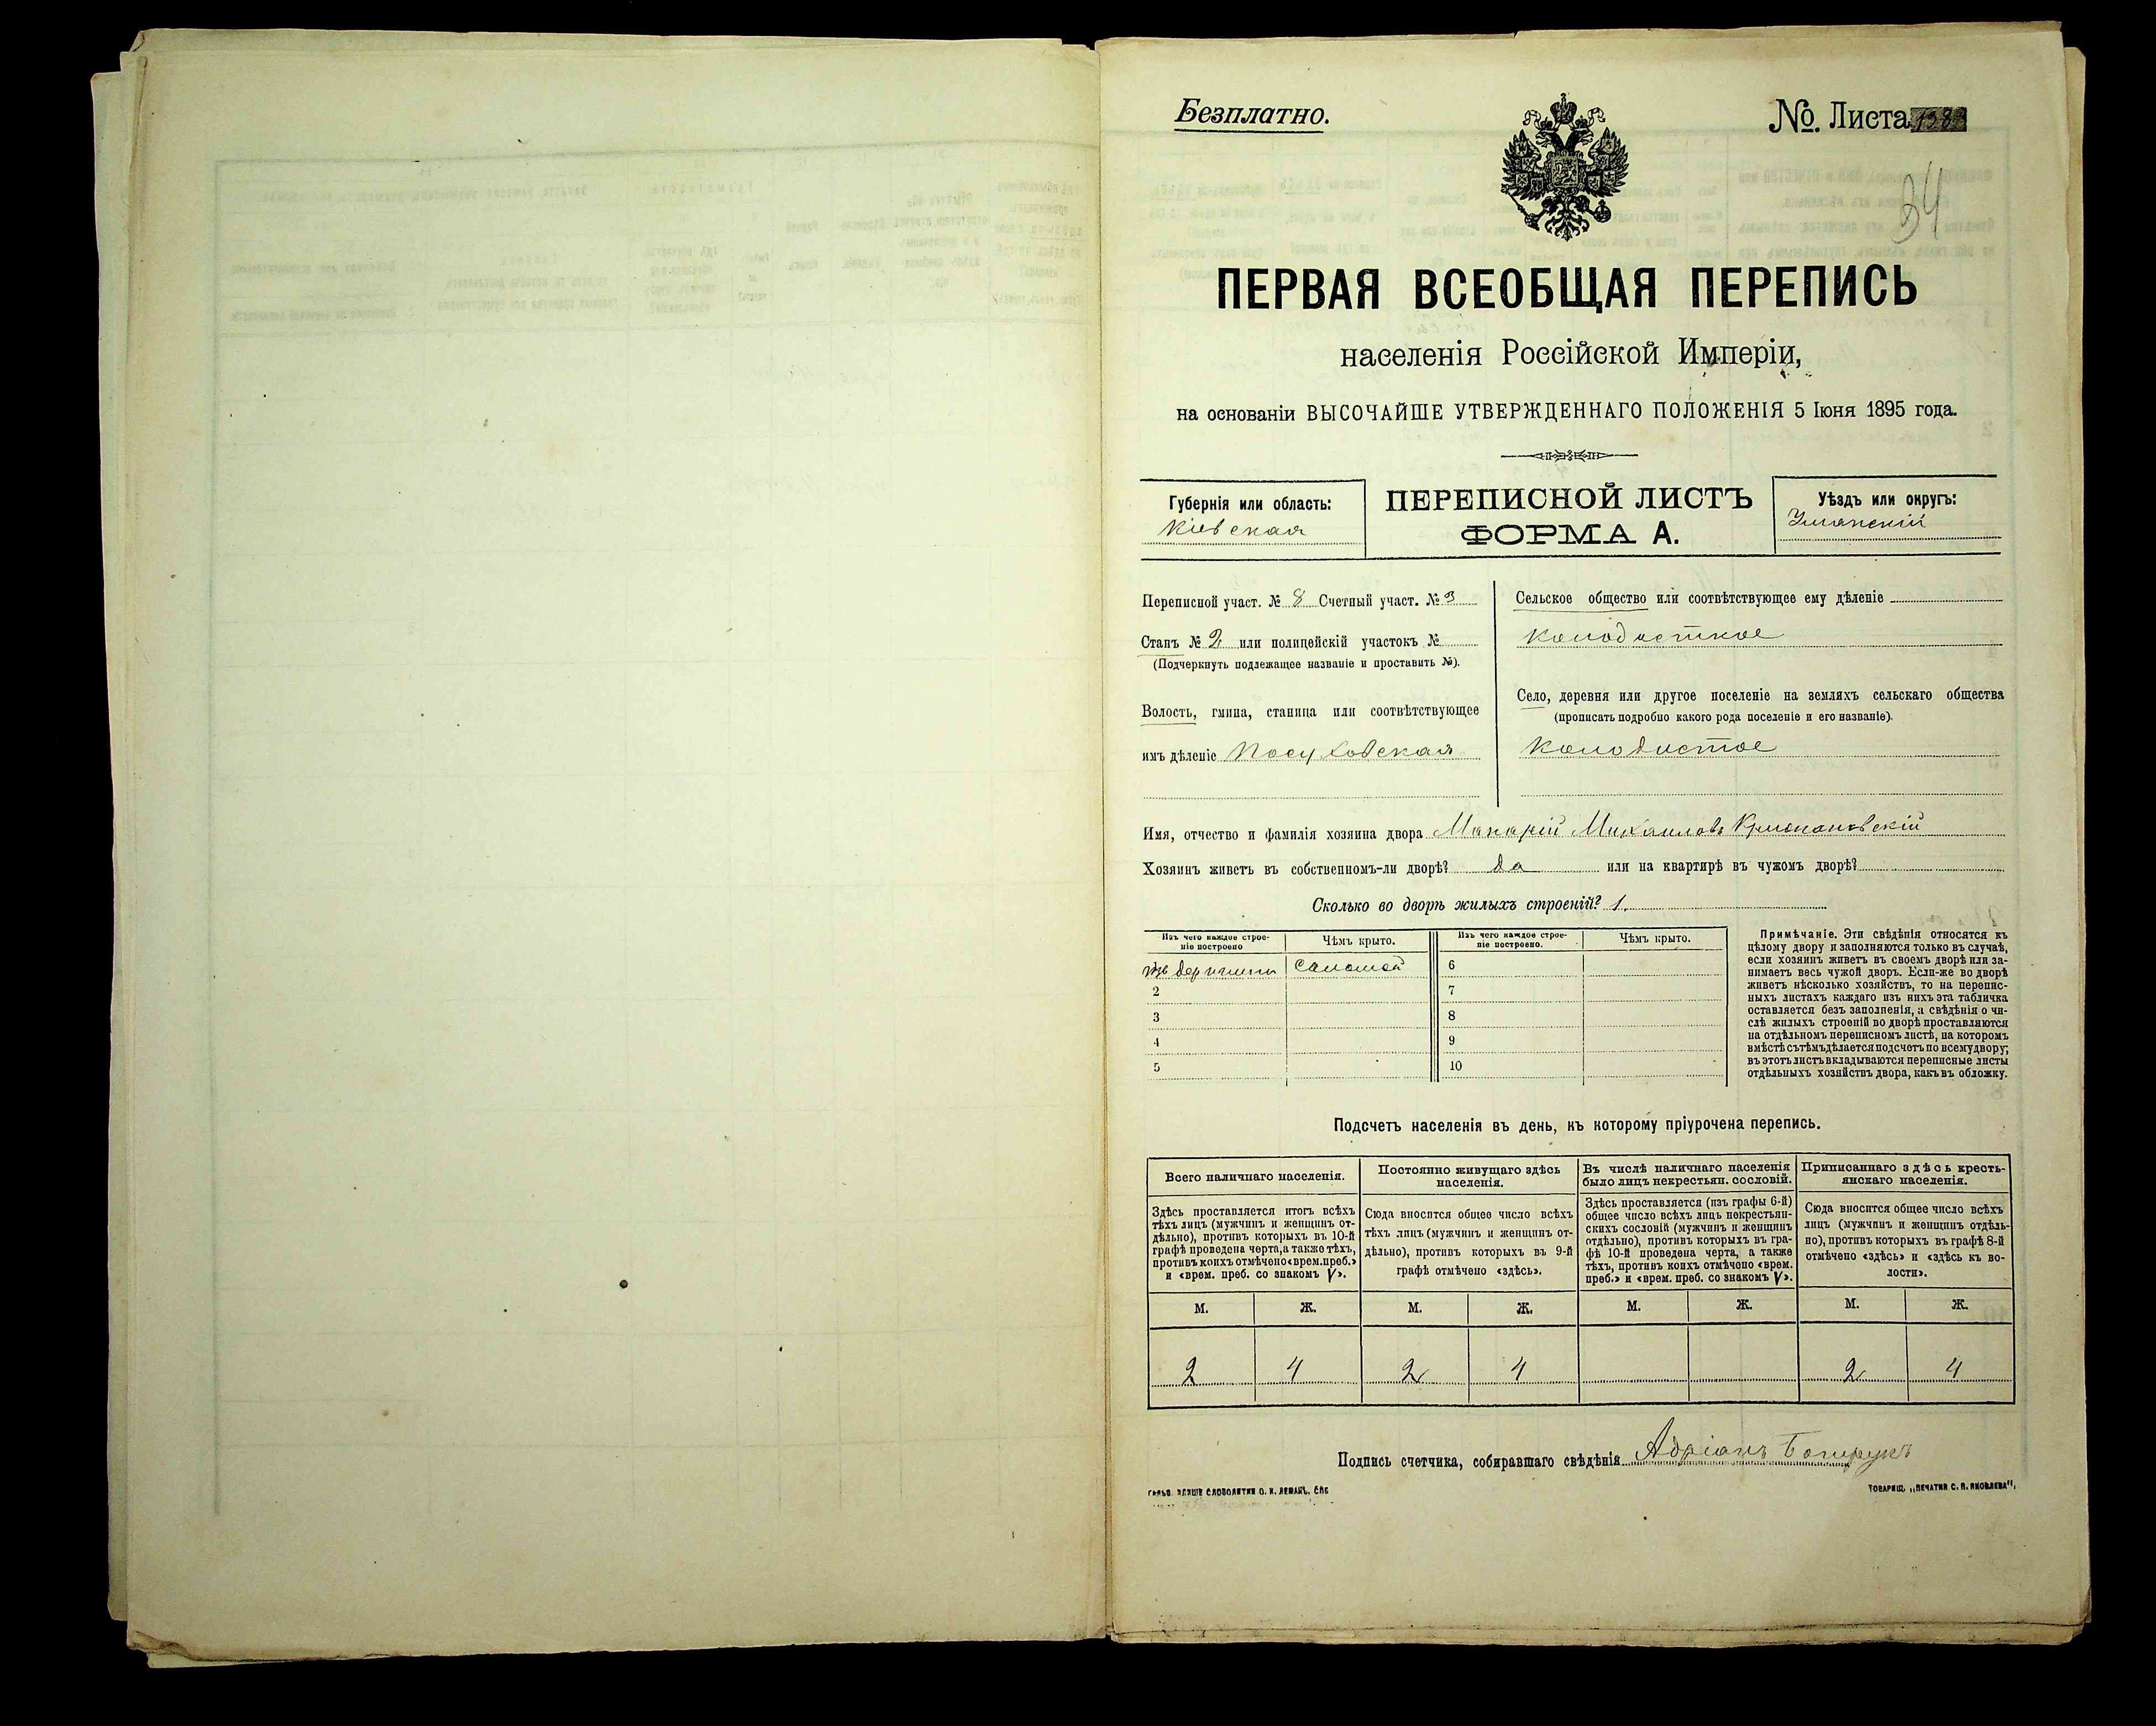 Безплатно.
№ Листа
34
ПЕРВАЯ ВСЕОБЩАЯ ПЕРЕПИСЬ
населенія Россійской Имперіи,
на основаніи ВЫСОЧАЙШЕ УТВЕРЖДЕННАГО ПОЛОЖЕНІЯ 5 Іюня 1895 года.
Губернія или область:
Кіевская
ПЕРЕПИСНОЙ ЛИСТЪ
ФОРМА А.
Уѣздъ или округъ:
Уманскій
Переписной участ. № 8 Счетный участ. № 3
Станъ № 2 или полицейскій участокъ №
(Подчеркнуть подлежащее названіе и проставить №).
Волость, гмина, станица или соотвѣтствующее
имъ дѣленіе Посуховская
Сельское общество или соотвѣтствующее ему дѣленіе
Колодисткое
Село, деревня или другое поселеніе на земляхъ сельскаго общества
(прописать подробно какого рода поселеніе и его названіе).
Колодистое
Имя, отчество и фамилія хозяина двора Макарій Михаиловъ
Хозяинъ живетъ въ собственномъ-ли дворѣ? да или на квартирѣ въ чужомъ дворѣ?
Сколько во дворѣ жилыхъ строеній? 1.
Изъ чего каждое строе-
ніе построено
Чѣмъ крыто.
Изъ чего каждое строе-
ніе построено.
Чѣмъ крыто.
Соломой
6
2
7
3
8
4
9
5
10
Примѣчаніе. Эти свѣдѣнія относятся къ
цѣлому двору и заполняются только въ случаѣ,
если хозяинъ живетъ въ своемъ дворѣ или за-
нимаетъ весь чужой дворъ. Если-же во дворѣ
живетъ нѣсколько хозяйствъ, то на перепис-
ныхъ листахъ каждаго изъ нихъ эта табличка
оставляется безъ заполненія, а свѣдѣнія о чи-
слѣ жилыхъ строеній во дворѣ проставляются
на отдѣльномъ переписномъ листѣ, на которомъ
вмѣстѣ съ тѣмъ дѣлается подсчетъ по всему двору;
въ этотъ листъ вкладываются переписные листы
отдѣльныхъ хозяйствъ двора, какъ въ обложку.
Подсчетъ населенія въ день, къ которому пріурочена перепись.
Всего наличнаго населенія.
Постоянно живущаго здѣсь
населенія.
Въ числѣ наличнаго населенія
было лицъ некрестьян. сословій.
Приписаннаго здѣсь кресть-
янскаго населенія.
Здѣсь проставляется итогъ всѣхъ
тѣхъ лицъ (мужчинъ и женщинъ от-
дѣльно), противъ которыхъ въ 10-й
графѣ проведена черта, а также тѣхъ,
противъ коихъ отмѣчено «врем. преб.»
и «врем. преб. со знакомъ V».
Сюда вносится общее число всѣхъ
тѣхъ лицъ (мужчинъ и женщинъ от-
дѣльно), противъ которыхъ въ 9-й
графѣ отмѣчено «здѣсь».
Здѣсь проставляется (изъ графы 6-й)
общее число всѣхъ лицъ некрестьян-
скихъ сословій (мужчинъ и женщинъ
отдѣльно), противъ которыхъ въ гра-
фѣ 10-й проведена черта, а также
тѣхъ, противъ коихъ отмѣчено «врем.
преб.» и «врем. преб. со знакомъ V».
Сюда вносится общее число всѣхъ
лицъ (мужчинъ и женщинъ отдѣль-
но), противъ которыхъ въ графѣ 8-й
отмѣчено «здѣсь» и «здѣсь къ во-
лости».
М. Ж. М. Ж. М. Ж. М. Ж.
2 4 2 4 2 4
Подпись счетчика, собиравшаго свѣдѣнія Адріанъ
ТОВАРИЩ. „ПЕЧАТНЯ С. П. ЯКОВЛЕВА“,